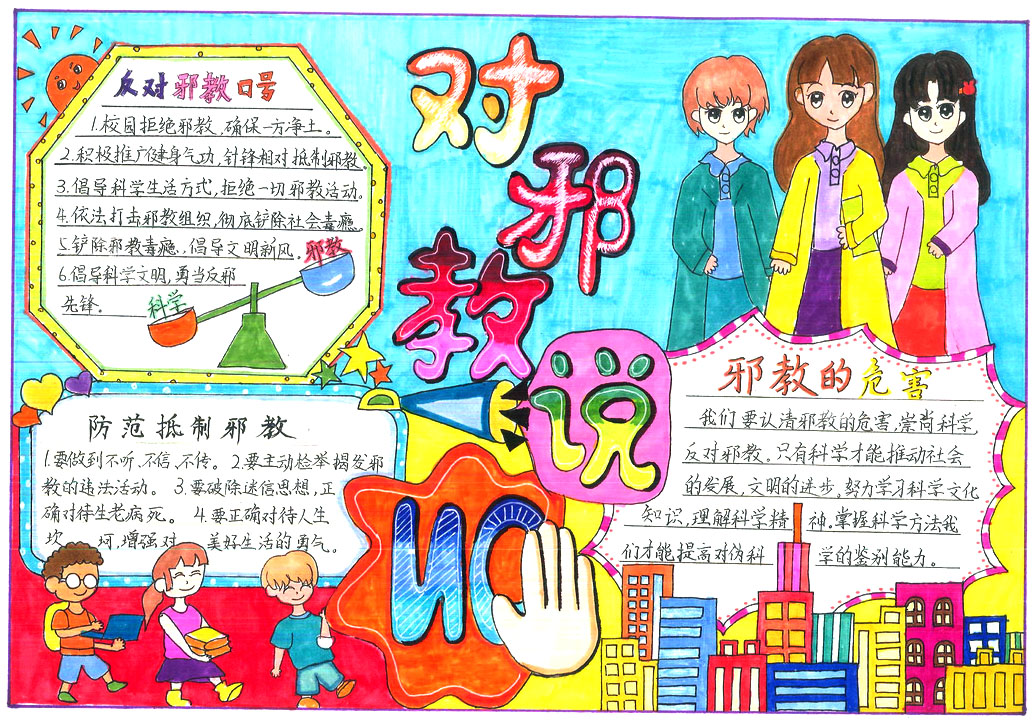 对
邪
教
说
NO
反对邪教口号
1.校园拒绝邪教,确保一方净土。
2.积极推广健身气功,针锋相对抵制邪教
3.倡导科学生活方式,拒绝一切邪教活动。
4.依法打击邪教组织,彻底铲除社会毒瘾。
5.铲除邪教毒瘾,倡导文明新风。
6.倡导科学文明,勇当反邪
先锋。
邪教
科学
防范抵制邪教
1.要做到不听、不信、不传。 2.要主动检举揭发邪
教的违法活动。 3.要破除迷信思想,正
确对待生老病死。 4.要正确对待人生
坎坷,增强对美好生活的勇气。
邪教的危害
我们要认清邪教的危害,崇尚科学,
反对邪教。只有科学才能推动社会
的发展,文明的进步,努力学习科学文化
知识,理解科学精神,掌握科学方法我
们才能提高对伪科学的鉴别能力。